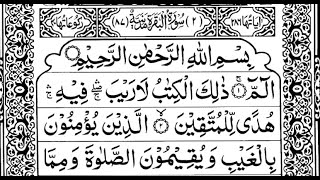 اٰيَاتُهَا ٢٨٦ (٢) سُوْرَةُ الْبَقَرَةِ مَدَنِيَّةٌ (٨٧) رُكُوْعَاتُهَا
بِسْمِ اللهِ الرَّحْمٰنِ الرَّحِيْمِ
الٓمّٓ ۝١ ذٰلِكَ الْكِتٰبُ لَا رَيْبَ ۛۖ فِيْهِ ۛۚ
هُدًى لِّلْمُتَّقِيْنَ ۝٢ الَّذِيْنَ يُؤْمِنُوْنَ
بِالْغَيْبِ وَيُقِيْمُوْنَ الصَّلٰوةَ وَمِمَّا